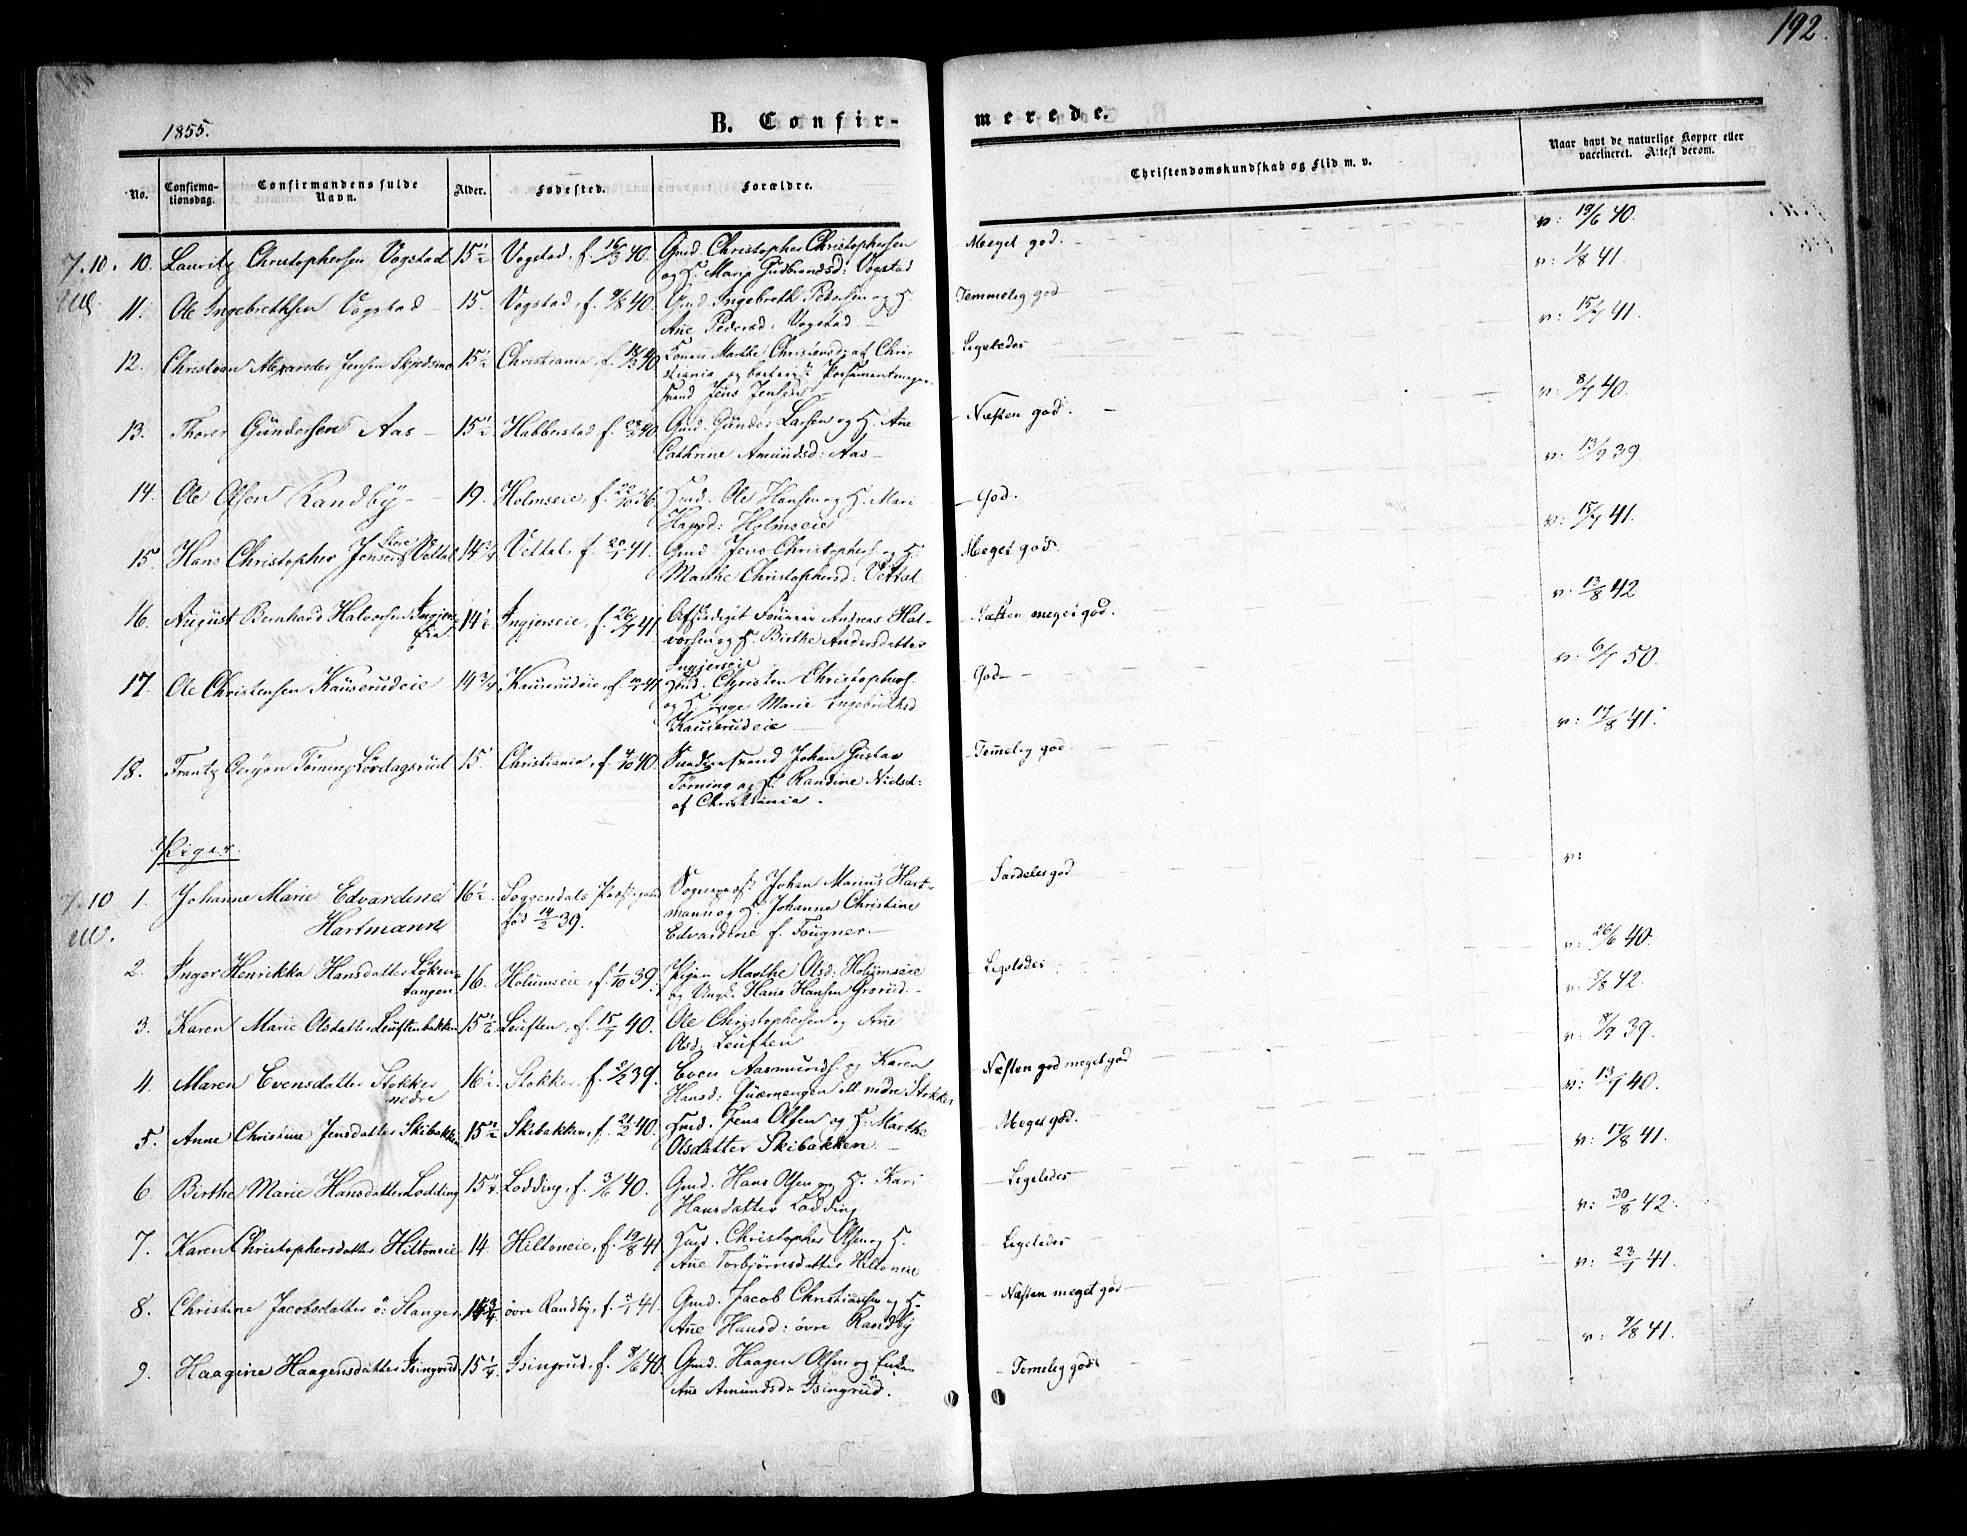 192.
1855.
B. Confir-
merede.
No.
Confirma-
tionsdag.
Confirmandens fulde
Navn.
Alder.
Fødested.
Forældre.
Christendomskundskab og Flid m. v.
Naar havt de naturlige Kopper eller
vaccineret. Attest derom.
7.10. 10. Lauritz Christophersen Vogstad 15½ Vogstad, f. 16/3 40. Gmd. Christopher Christophersen Meget god. v: 19/6 40.
og H. Marie Gudbrandsd: Vogstad
11. Ole Ingebrethsen Vogstad 15. Vogstad, f. 9/8 40. Gmd. Ingebreth Pedersen og H. Temmelig god v: 1/8 41.
Ane Pedersd: Vogstad
12. Christian Alexander Jensen Skjedsmo 15½ Christiania, f. 40 Marthe Christensd: af Chri- Ligeledes v: 15/7 41.
stiania og Possementmager-
svend Jens Jensen
13. Thorer Gundersen Aas 15½ Habberstad f. 40. Gmd. Gunder Larsen og H. Ane Næsten god. v: 8/7 40.
Cathrine Amundsd: Aas
14. Ole Olsen Randby 19. Holmseie, f. 36. Hmd. Ole Hansen og H. Mari God. v: 13/7 39
Holmseie
15. Hans Christopher Jensen Store Vettal 14¾ Vettal, f. 20/1 41. Gmd. Jens Christophers. og H. Meget god. v: 15/7 41.
Marthe Christophersd: Vettal
16. August Bernhard Halvorsen Ingjers- 14½ Ingjerseie, f. 26/4 41 Afskediget Andreas Hal- Næsten meget god. v: 13/8 42
eie vorsen og H. Birthe Andersdatter
Ingjerseie
17. Ole Christensen Kauserudeie 14¾ Kauserudeie, f. 41 Hmd. Christen Christophers. God v: 6/7 50.
og H. Inge Marie Ingebrethsd
Kauserudeie
18. Frantz Törning Lövdagsrud 15 Christiania, f. 4/10 40. Snedkersvend Johan Gustav Temelig god. v: 17/8 41.
Törning og H. Randine Nielsd:
af Christiania.
Piger.
7.10 1. Johanne Marie Edvardine 16½ Soggendals Præstegaard Sogneprest Johan Marius Hart- Særdeles god v:
Hartmann fød 14/2 39. mann og H. Johanne Christine
Edvardine f. Fougner.
2. Inger Henrikka Hansdatter Løken- 16. Holumseie, f. 1/10 39. Pigen Marthe Olsd: Holumseie Ligeledes v: 26/6 40.
tangen og Ungk. Hans Hansen Grorud.
3. Karen Marie Olsdatter Leuftenbakken 15½ Leuften, f. 15/7 40. Ole Christophersen og Ane v: 5/8 42.
Olsd: Leuften
4. Maren Evensdatter Stokker 16½ Stokker, f. 5/2 39. Even Aasmunds. og Karen Næsten god meget god v: 8/9 39.
nedre Hansd: Quæmengen ell. nedre Stokker
5. Anne Christine Jensdatter Skibakken 15½ Skibakken, f. 21/2 40. Hmd. Jens Olsen og H. Marthe Meget god. v: 13/7 40.
Olsdatter Skibakken.
6 Birthe Marie Hansdatter Lodding 15¼ Lodding, f. 3/6 40. Gmd. Hans Olsen og H. Kari Ligeledes v: 17/8 41.
Hansdatter Lodding
7. Karen Christophersdatter Hiltoneie 14. Hiltoneie, f. 19/8 41. Hmd. Christopher Olsen og H. Ligeledes v: 30/8 42.
Ane Torbjörnsdatter Hiltoneie
8. Christine Jacobsdatter ö: Slanger 14¾ övre Randby, f. 41. Gmd. Jacob Christiansen og H. Næsten meget god v: 23/7 41.
Ane Hansd: övre Randby
9. Haagine Haagensdatter Isingrud 15¼ Isingrud, f. 8/6 40. Gmd. Haagen Olsen og Enke Temelig god v: 9/8 41.
Ane Amundsdr Isingrud.